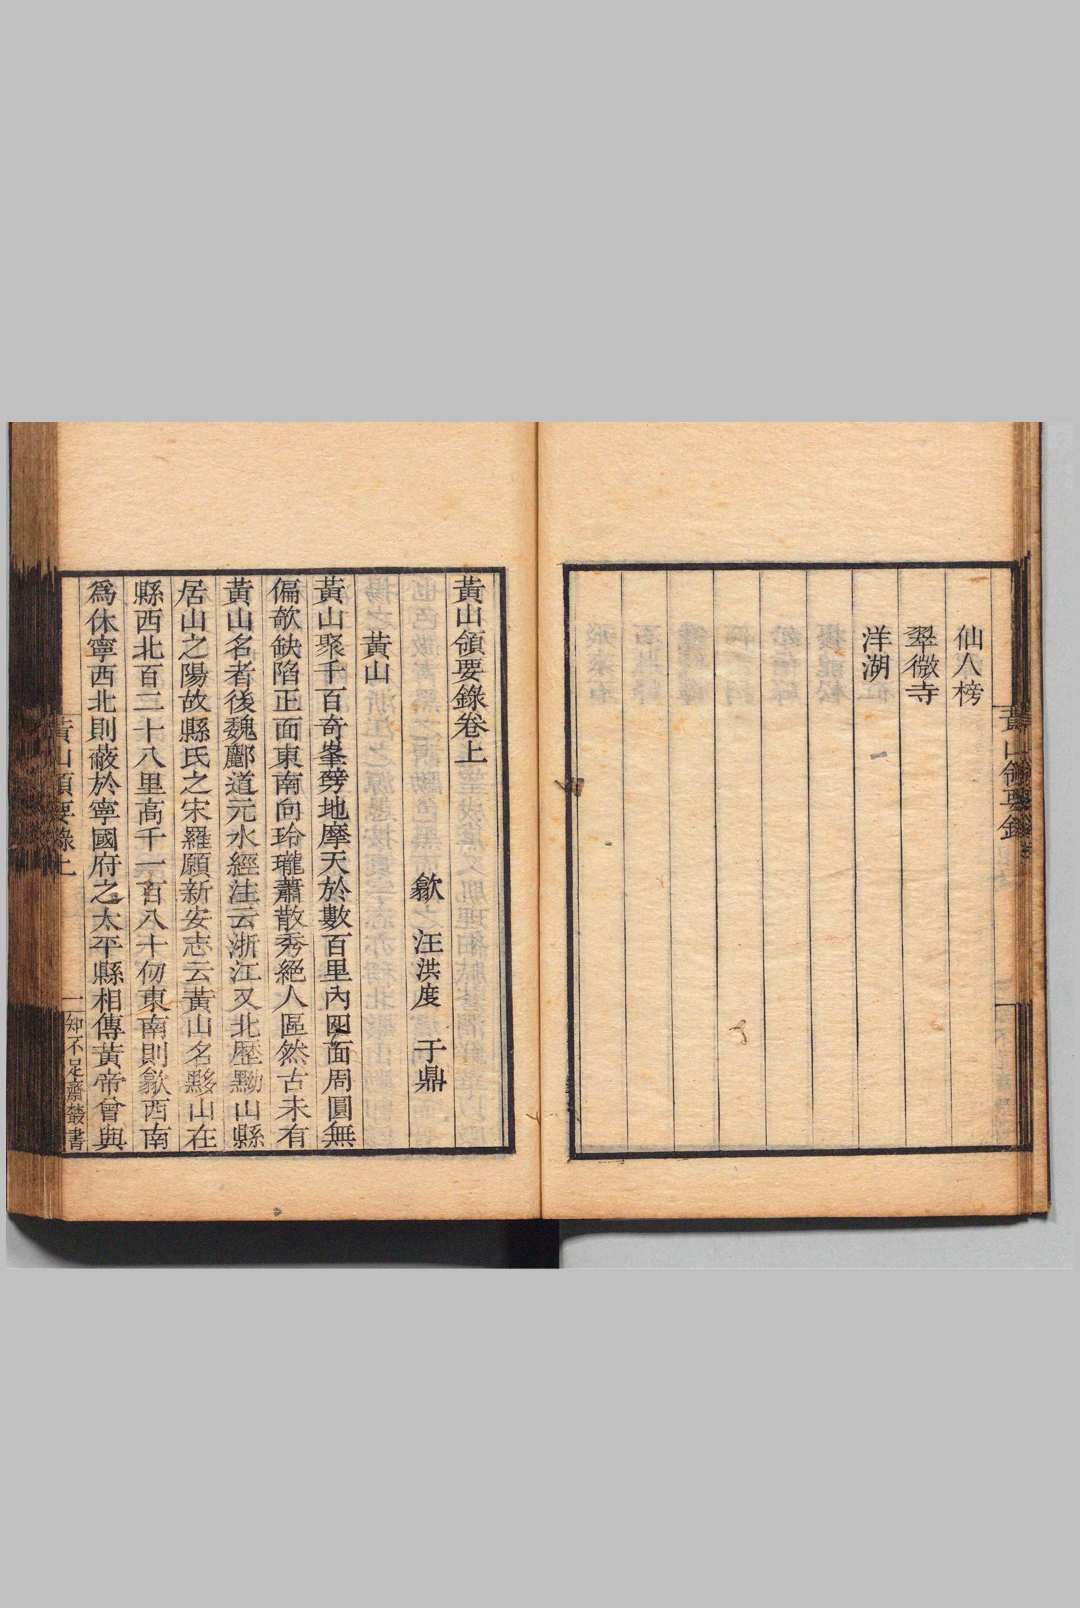 仙人榜
翠微寺
洋湖
黃山領要錄
黃山領要錄卷上
歙 汪洪度 于鼎
黃山
黃山聚千百奇峯蒡地摩天於數百里內四面周圓無
偏欹缺陷正面東南向玲瓏蕭散秀絕人區然古未有
黃山名者後魏酈道元水經注云浙江又北歷黝山縣
居山之陽故縣氏之宋羅願新安志云黃山名黟山在
縣西北百三十八里高千一百八十仞東南則歙西南
爲休寧西北則蔽於寧國府之太平縣相傳黃帝曾與
黃山領要錄上
一
知不足齋叢書